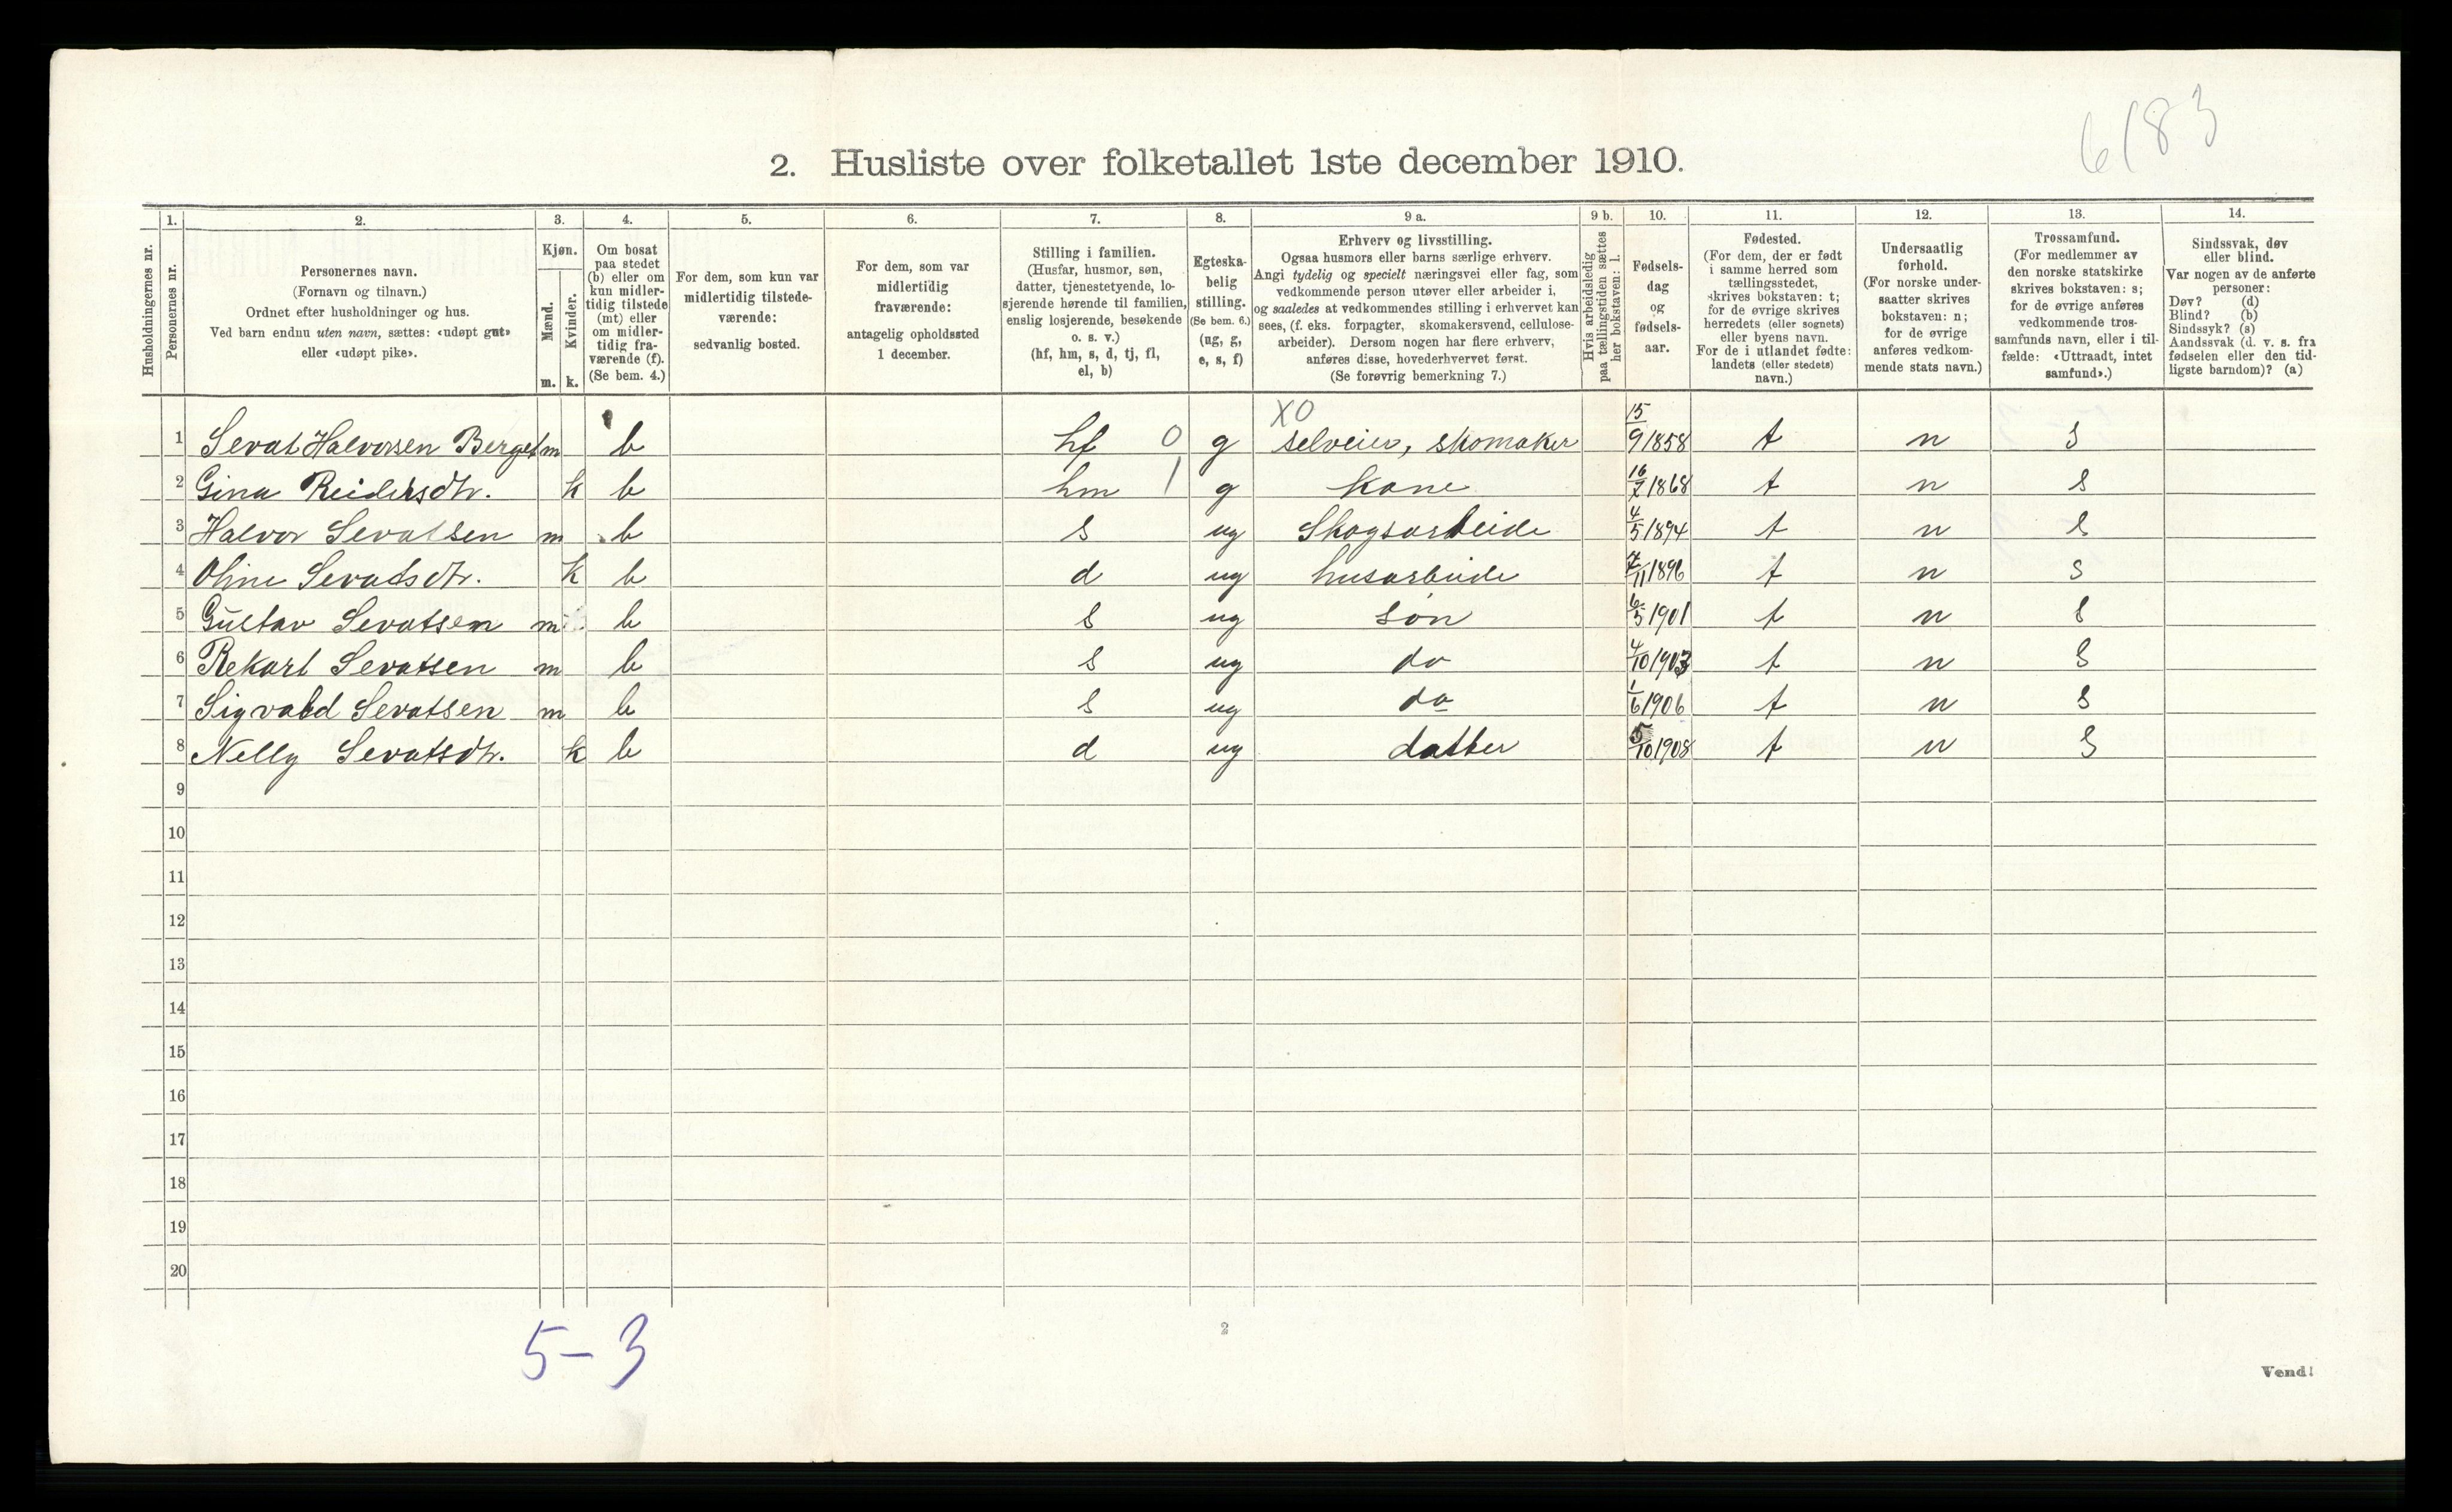 6183
2. Husliste over folketallet 1ste december 1910.
Husholdningernes nr.
1. Personernes nr.
2. Personernes navn.
(Fornavn og tilnavn.)
Ordnet efter husholdninger og hus.
Ved barn endnu uten navn, sættes: «udøpt gut»
eller «udøpt pike».
3. Kjøn.
Mænd. m.
Kvinder. k.
4. Om bosat
paa stedet
(b) eller om
kun midler-
tidig tilstede
(mt) eller
om midler-
tidig fra-
værende (f).
(Se bem. 4.)
5. For dem, som kun var
midlertidig tilstede-
værende:
sedvanlig bosted.
6. For dem, som var
midlertidig
fraværende:
antagelig opholdssted
1 december.
7. Stilling i familien.
(Husfar, husmor, søn,
datter, tjenestetyende, lo-
sjerende hørende til familien,
enslig losjerende, besøkende
o. s. v.)
(hf, hm, s, d, tj, fl,
el, b)
8. Egteska-
belig
stilling.
(Se bem. 6.)
(ug, g,
e, s, f)
9 a. Erhverv og livsstilling.
Ogsaa husmors eller barns særlige erhverv.
Angi tydelig og specielt næringsvei eller fag, som
vedkommende person utøver eller arbeider i,
og saaledes at vedkommendes stilling i erhvervet kan
sees, (f. eks. forpagter, skomakersvend, cellulose-
arbeider). Dersom nogen har flere erhverv,
anføres disse, hovederhvervet først.
(Se forøvrig bemerkning 7.)
9 b. Hvis arbeidsledig
paa tællingstiden sættes
her bokstaven: l.
10. Fødsels-
dag
og
fødsels-
aar.
11. Fødested.
(For dem, der er født
i samme herred som
tællingsstedet,
skrives bokstaven: t;
for de øvrige skrives
herredets (eller sognets)
eller byens navn.
For de i utlandet fødte:
landets (eller stedets)
navn.)
12. Undersaatlig
forhold.
(For norske under-
saatter skrives
bokstaven: n;
for de øvrige
anføres vedkom-
mende stats navn.)
13. Trossamfund.
(For medlemmer av
den norske statskirke
skrives bokstaven: s;
for de øvrige anføres
vedkommende tros-
samfunds navn, eller i til-
fælde: «Uttraadt, intet
samfund».)
14. Sindssvak, døv
eller blind.
Var nogen av de anførte
personer:
Døv? (d)
Blind? (b)
Sindssyk? (s)
Aandssvak (d. v. s. fra
fødselen eller den tid-
ligste barndom)? (a)
XO
1 Sevat Halvorsen Berget m b hf 0 g selveier, skomaker 15/9 1858 t n s
2 Gina Reidersdtr. k b hm 1 g kone 16/7 1868 t n s
3 Halvor Sevatsen m b s ug Skogsarbeide 4/5 1894 t n s
4 Oline Sevatsdtr. k b d ug husarbeide 7/11 1896 t n s
5 Gustav Sevatsen m b s ug søn 6/5 1901 t n s
6 Rekart Sevatsen m b s ug do 4/10 1903 t n s
7 Sigvald Sevatsen m b s ug do 1/6 1906 t n s
8 Nelly Sevatsdtr. k b d ug datter 5/10 1908 t n s
9
10
11
12
13
14
15
16
17
18
19
20
5-3
2
Vend!